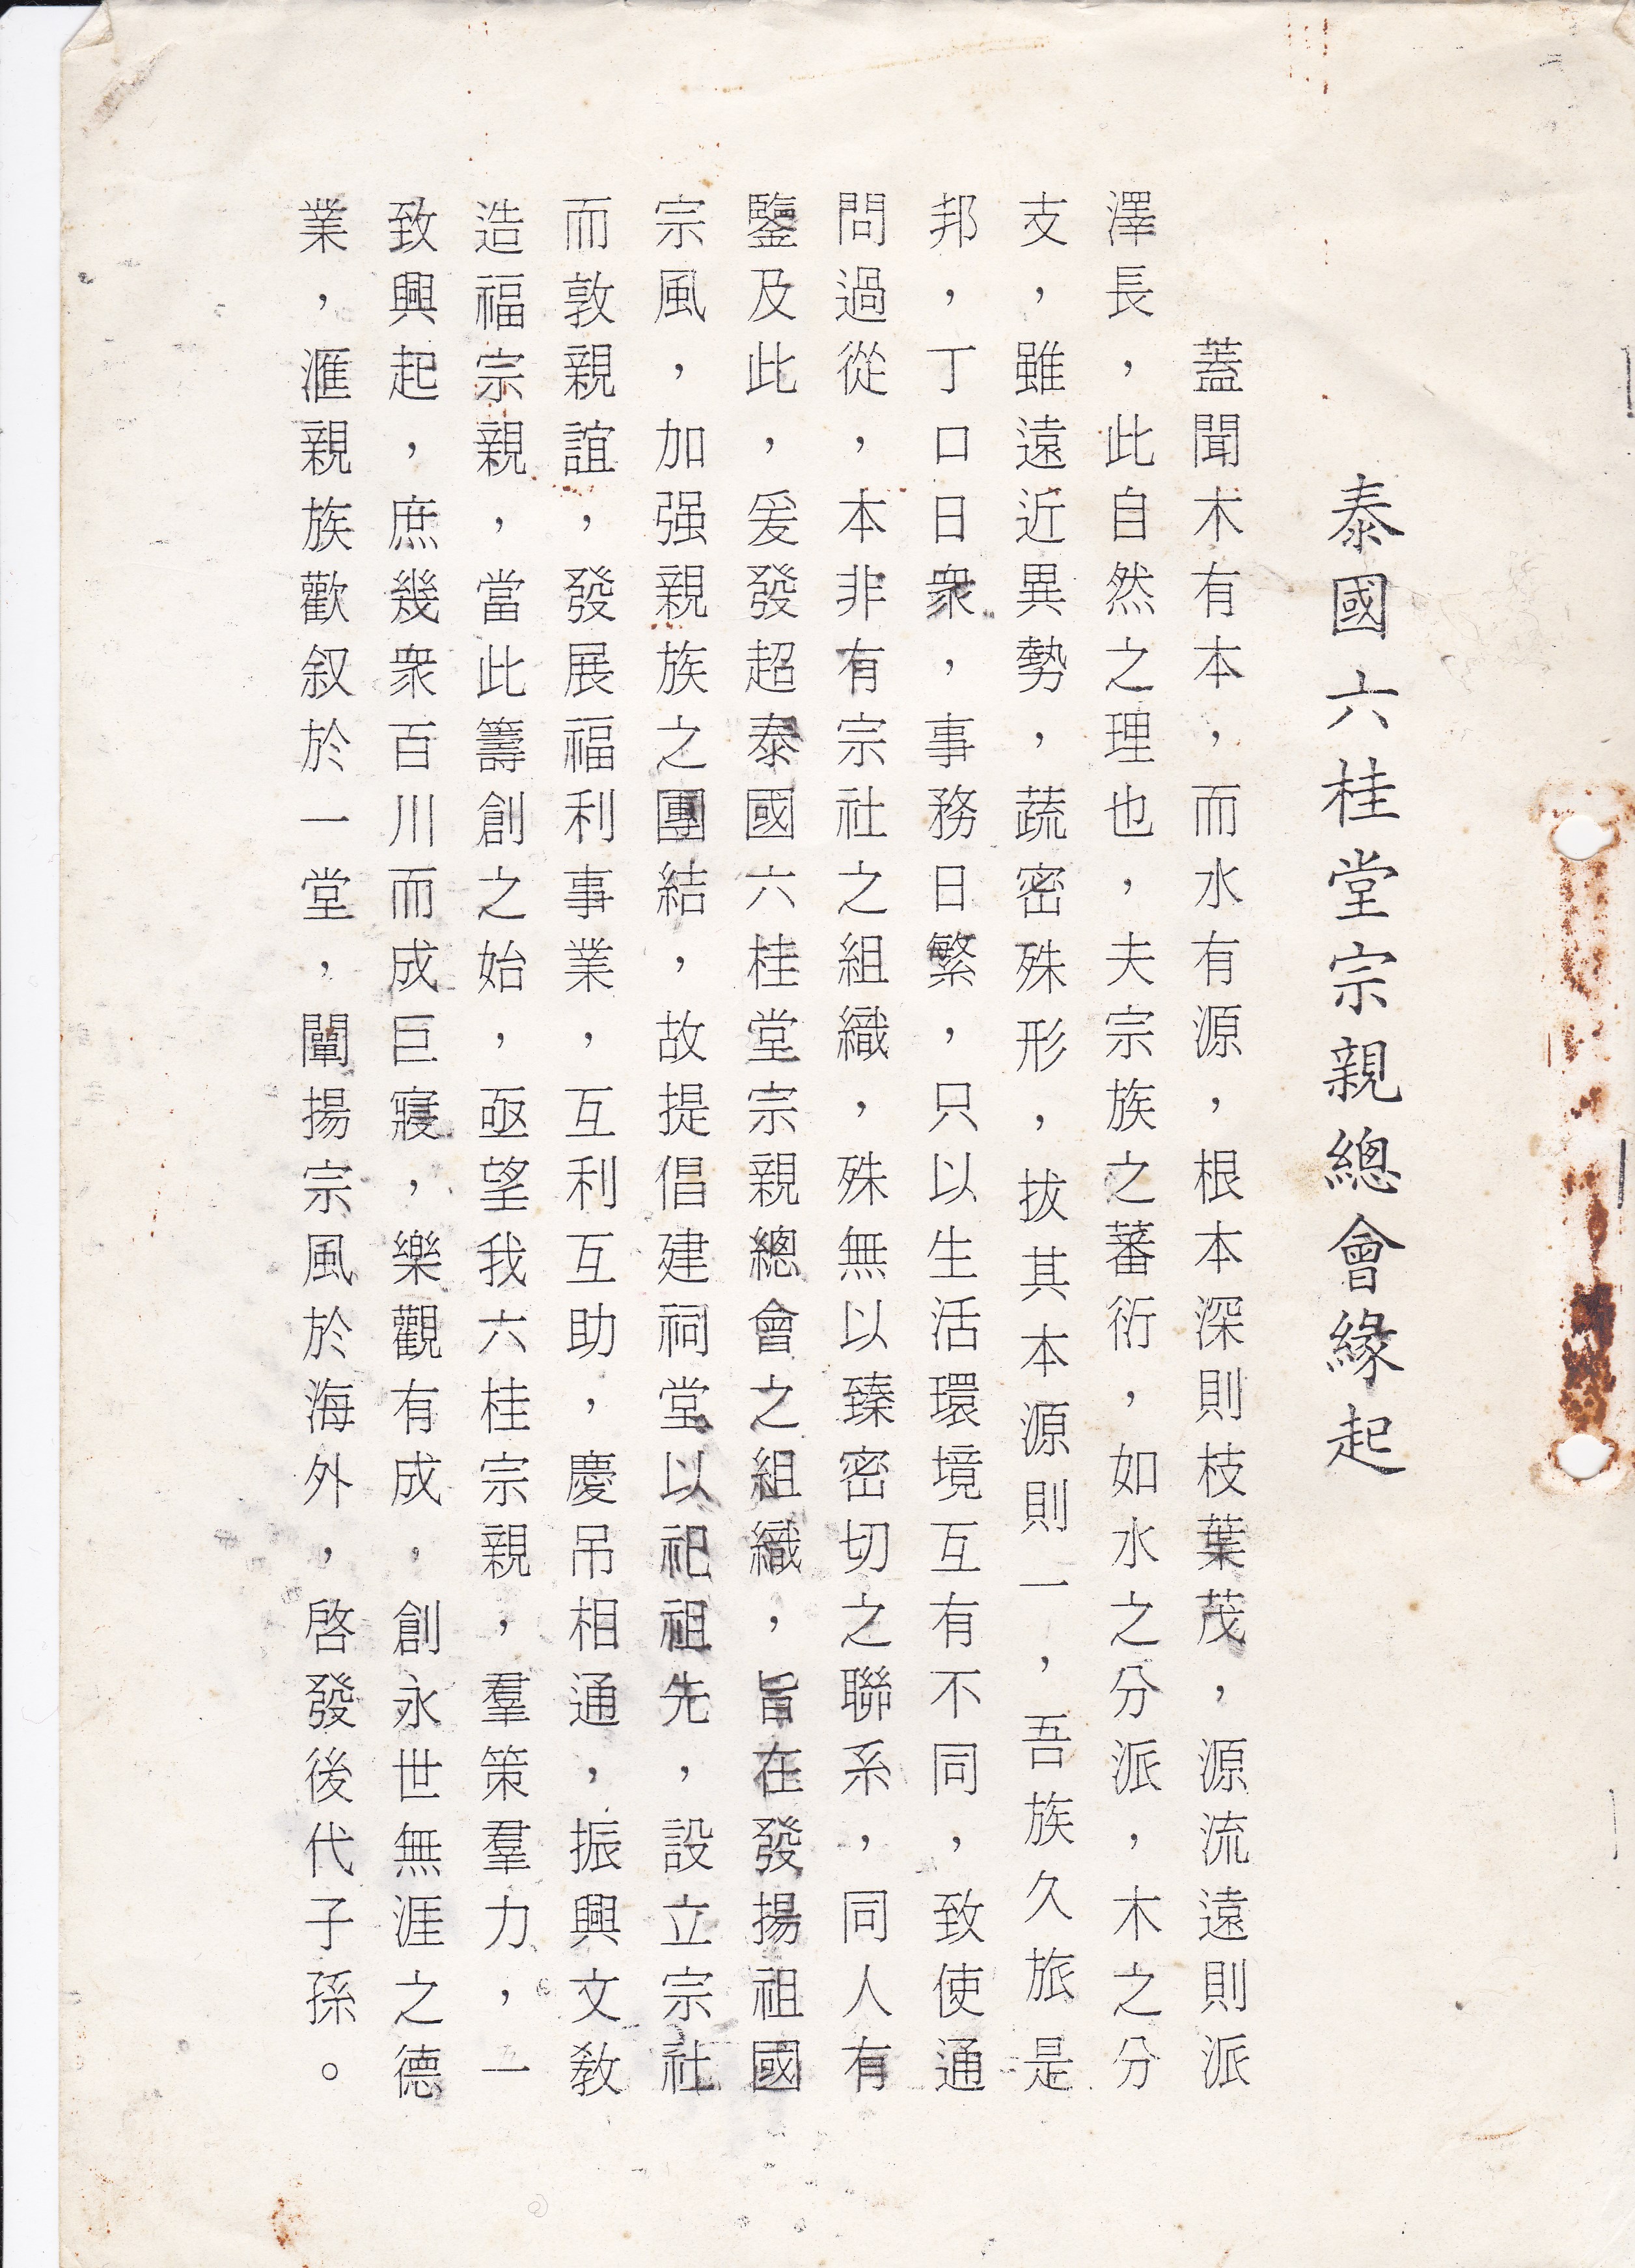 泰國六桂堂宗親總會緣起
蓋聞木有本，而水有源，根本深則枝葉茂，源流遠則派
澤長，此自然之理也，夫宗族之蕃衍，如水之分派，木之分
支，雖遠近異勢，蔬密殊形，拔其本源則一，吾族久旅是
邦，丁口日衆，事務日繁，只以生活環境互有不同，致使通
問過從，本非有宗社之組織，殊無以臻密切之聯系，同人有
鑒及此，爰發超泰國六桂堂宗親總會之組織，旨在發揚祖國
宗風，加强親族之團結，故提倡建祠堂以祀祖先，設立宗社
而敦親誼，發展福利事業，互利互助，慶吊相通，振興文教
造福宗親，當此籌創之始，亟望我六桂宗親，羣策羣力，一
致興起，庶幾衆百川而成巨寢，樂觀有成，創永世無涯之德
業，滙親族歡叙於一堂，闡揚宗風於海外，啓發後代子孫。